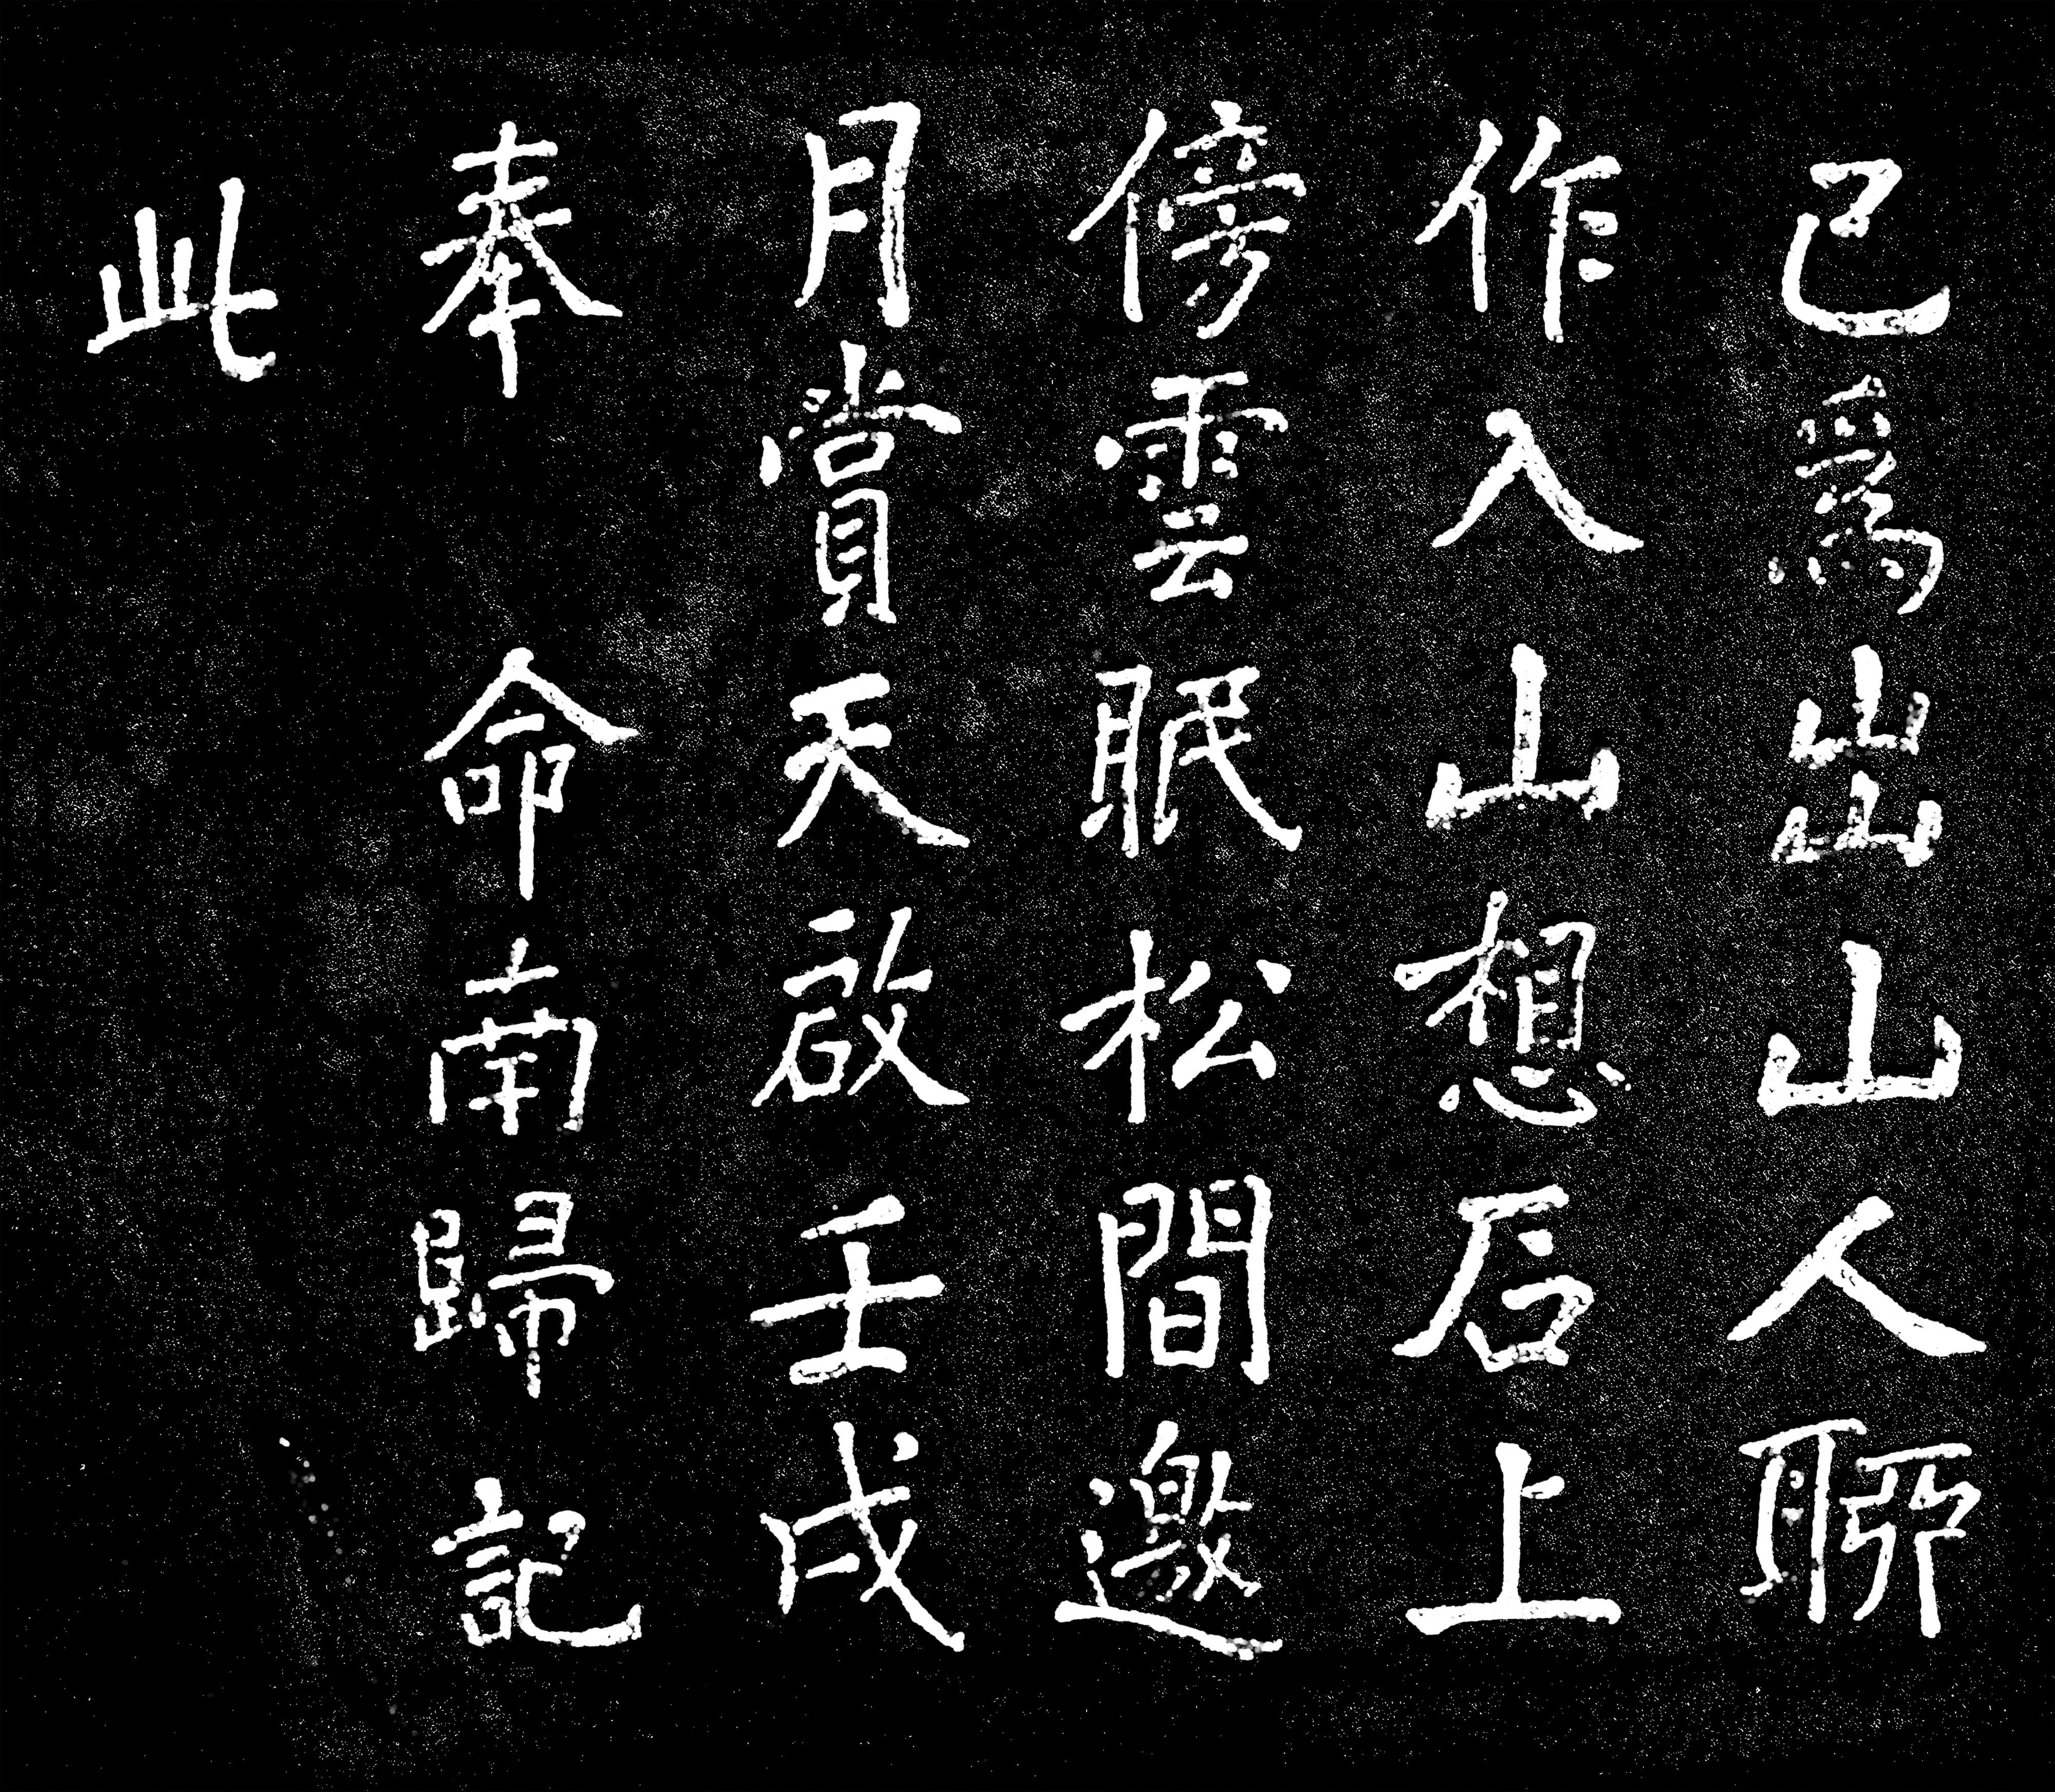 已爲出山人聊
作入山想后上
傍雲眠松間邀
月賞天啟壬戌
奉 命南歸記
此